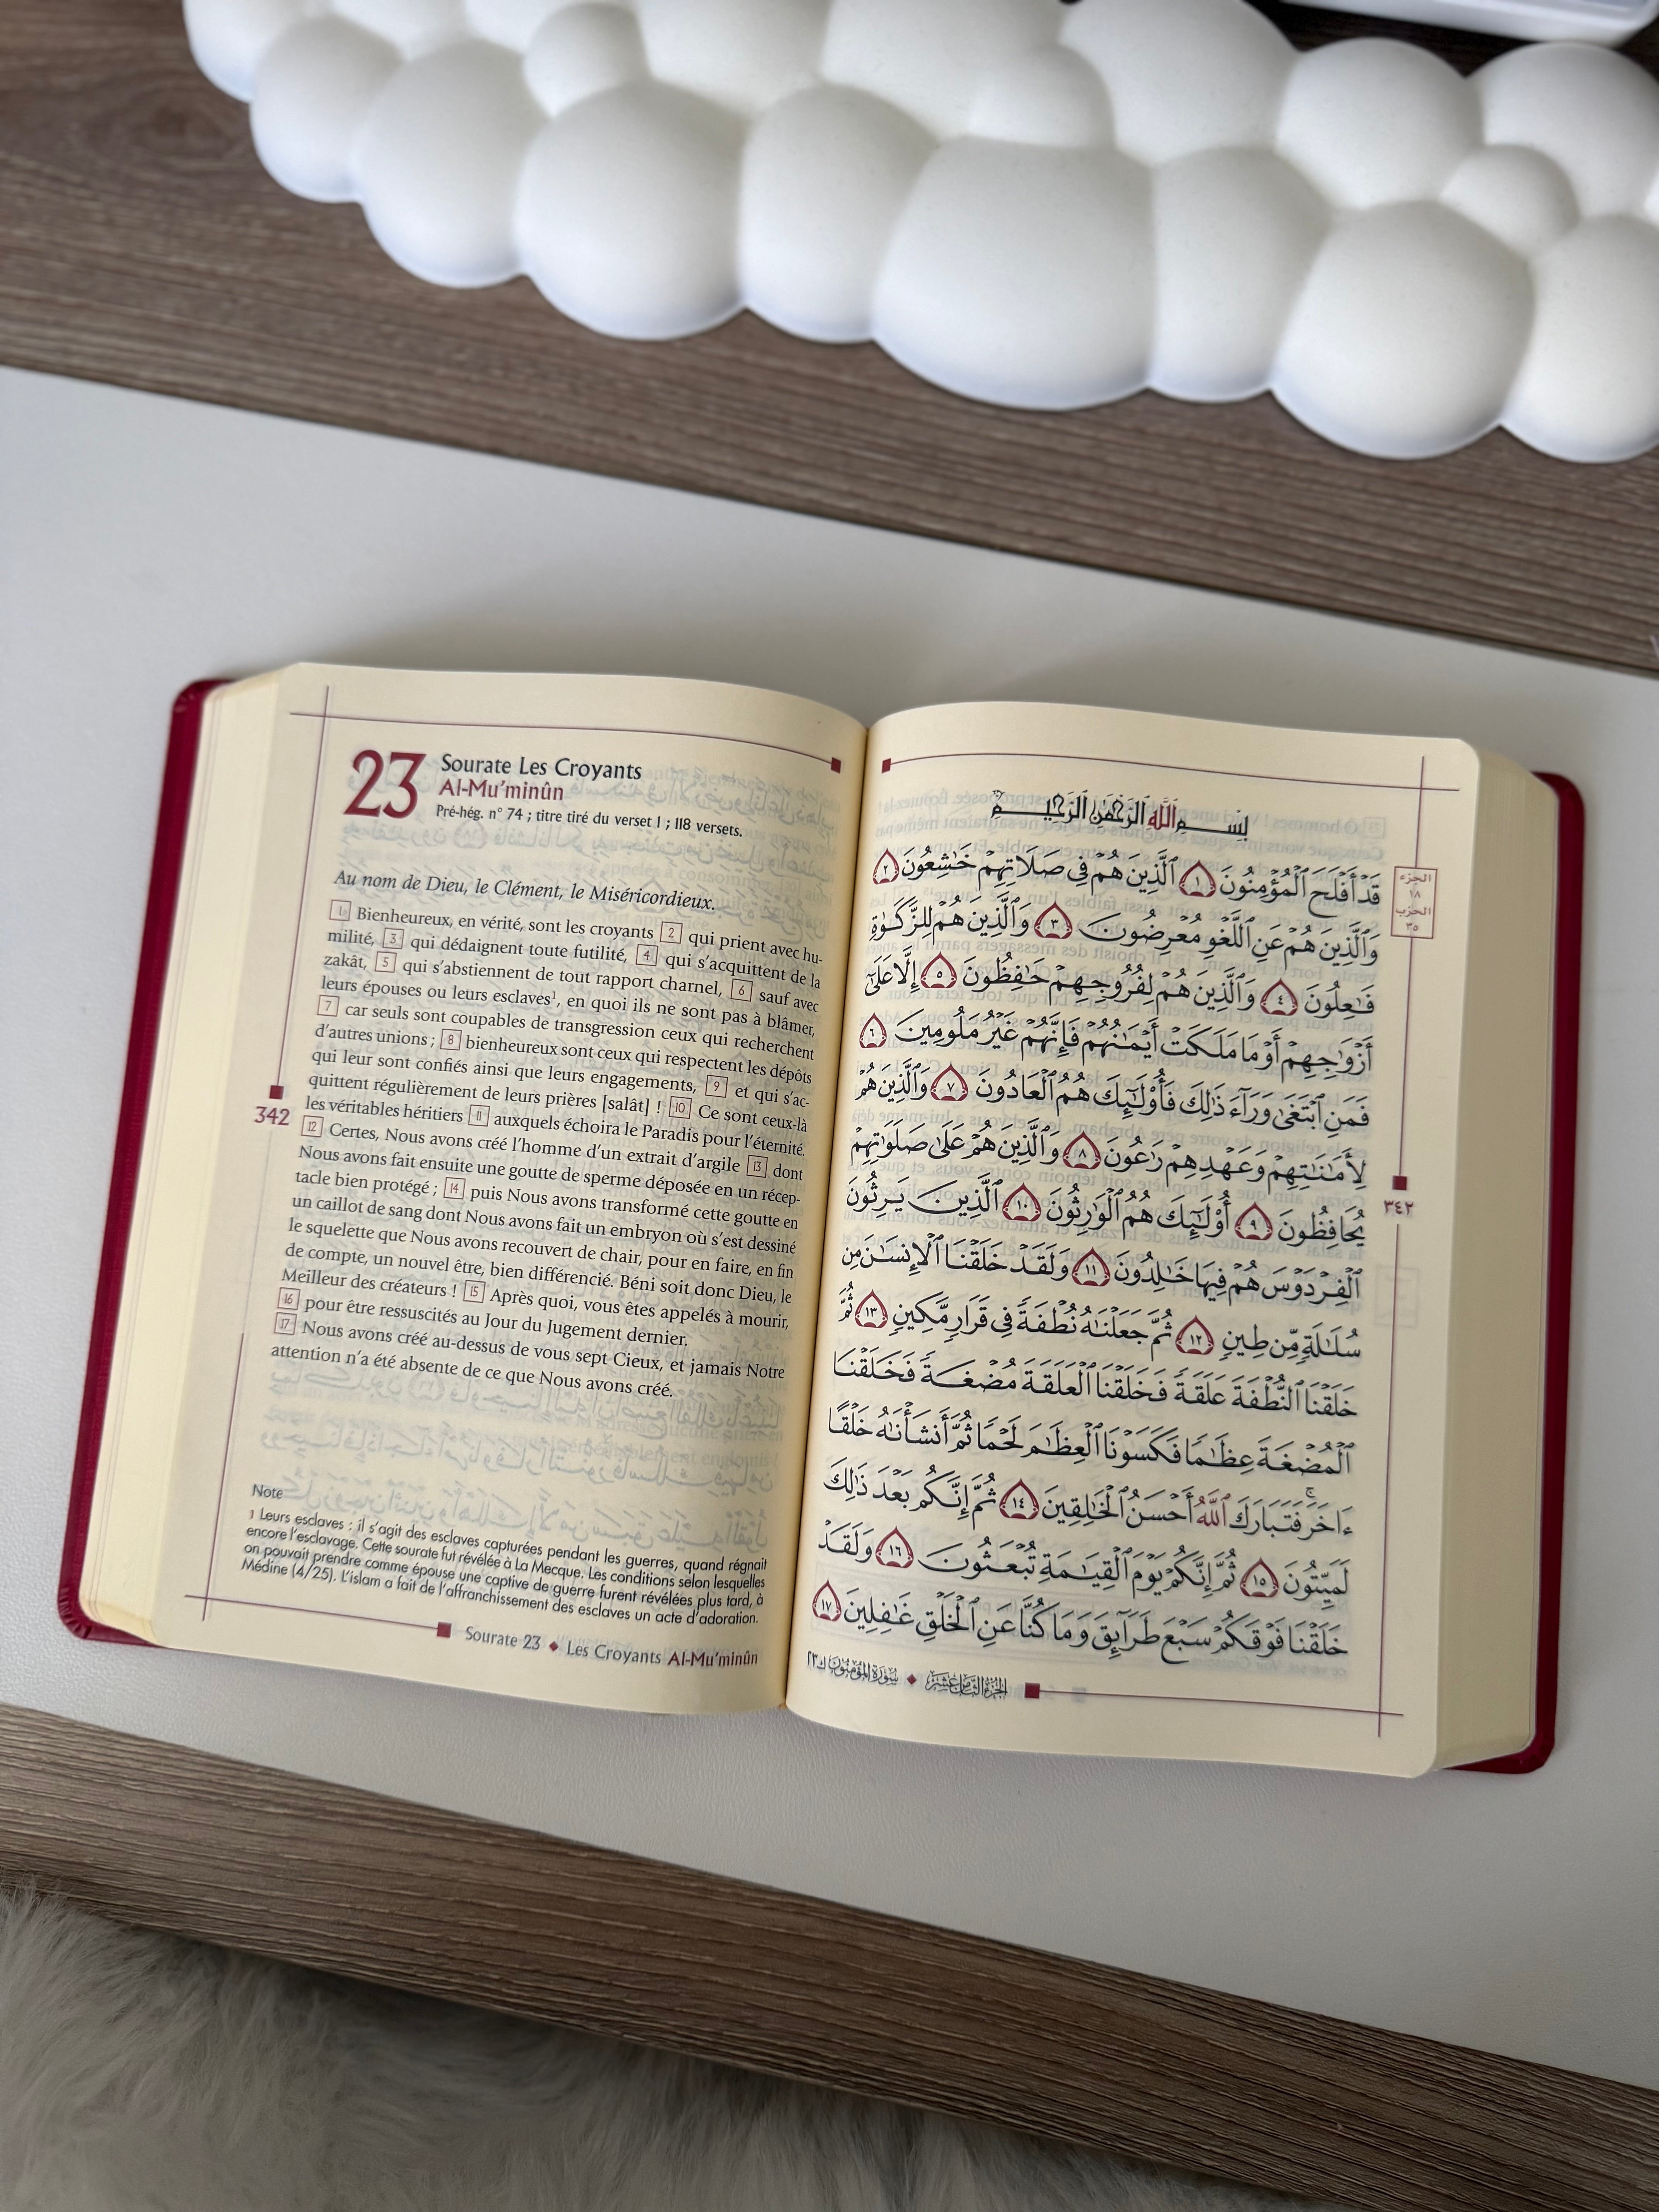 23
Sourate Les Croyants
Al-Mu'minûn
Pré-hég. n° 74 ; titre tiré du verset 1 ; 118 versets.
Au nom de Dieu, le Clément, le Miséricordieux.
1 Bienheureux, en vérité, sont les croyants 2 qui prient avec hu-
milité, 3 qui dédaignent toute futilité, 4 qui s'acquittent de la
zakât, 5 qui s'abstiennent de tout rapport charnel, 6 sauf avec
leurs épouses ou leurs esclaves¹, en quoi ils ne sont pas à blâmer,
7 car seuls sont coupables de transgression ceux qui recherchent
d'autres unions ; 8 bienheureux sont ceux qui respectent les dépôts
qui leur sont confiés ainsi que leurs engagements, 9 et qui s'ac-
quittent régulièrement de leurs prières [salât] ! 10 Ce sont ceux-là
les véritables héritiers 11 auxquels échoira le Paradis pour l'éternité.
12 Certes, Nous avons créé l'homme d'un extrait d'argile 13 dont
Nous avons fait ensuite une goutte de sperme déposée en un récep-
tacle bien protégé ; 14 puis Nous avons transformé cette goutte en
un caillot de sang dont Nous avons fait un embryon où s'est dessiné
le squelette que Nous avons recouvert de chair, pour en faire, en fin
de compte, un nouvel être, bien différencié. Béni soit donc Dieu, le
Meilleur des créateurs ! 15 Après quoi, vous êtes appelés à mourir,
16 pour être ressuscités au Jour du Jugement dernier.
17 Nous avons créé au-dessus de vous sept Cieux, et jamais Notre
attention n'a été absente de ce que Nous avons créé.
342
Note
1 Leurs esclaves : il s'agit des esclaves capturées pendant les guerres, quand régnait
encore l'esclavage. Cette sourate fut révélée à La Mecque. Les conditions selon lesquelles
on pouvait prendre comme épouse une captive de guerre furent révélées plus tard, à
Médine (4/25). L'islam a fait de l'affranchissement des esclaves un acte d'adoration.
Sourate 23 ◆ Les Croyants Al-Mu'minûn
بِسْمِ ٱللَّهِ ٱلرَّحْمَٰنِ ٱلرَّحِيمِ
قَدْ أَفْلَحَ ٱلْمُؤْمِنُونَ ١ ٱلَّذِينَ هُمْ فِى صَلَاتِهِمْ خَٰشِعُونَ ٢
وَٱلَّذِينَ هُمْ عَنِ ٱللَّغْوِ مُعْرِضُونَ ٣ وَٱلَّذِينَ هُمْ لِلزَّكَوٰةِ
فَٰعِلُونَ ٤ وَٱلَّذِينَ هُمْ لِفُرُوجِهِمْ حَٰفِظُونَ ٥ إِلَّا عَلَىٰٓ
أَزْوَٰجِهِمْ أَوْ مَا مَلَكَتْ أَيْمَٰنُهُمْ فَإِنَّهُمْ غَيْرُ مَلُومِينَ ٦
فَمَنِ ٱبْتَغَىٰ وَرَآءَ ذَٰلِكَ فَأُو۟لَٰٓئِكَ هُمُ ٱلْعَادُونَ ٧ وَٱلَّذِينَ هُمْ
لِأَمَٰنَٰتِهِمْ وَعَهْدِهِمْ رَٰعُونَ ٨ وَٱلَّذِينَ هُمْ عَلَىٰ صَلَوَٰتِهِمْ
يُحَافِظُونَ ٩ أُو۟لَٰٓئِكَ هُمُ ٱلْوَٰرِثُونَ ١٠ ٱلَّذِينَ يَرِثُونَ
ٱلْفِرْدَوْسَ هُمْ فِيهَا خَٰلِدُونَ ١١ وَلَقَدْ خَلَقْنَا ٱلْإِنسَٰنَ مِن
سُلَٰلَةٍ مِّن طِينٍ ١٢ ثُمَّ جَعَلْنَٰهُ نُطْفَةً فِى قَرَارٍ مَّكِينٍ ١٣ ثُمَّ
خَلَقْنَا ٱلنُّطْفَةَ عَلَقَةً فَخَلَقْنَا ٱلْعَلَقَةَ مُضْغَةً فَخَلَقْنَا
ٱلْمُضْغَةَ عِظَٰمًا فَكَسَوْنَا ٱلْعِظَٰمَ لَحْمًا ثُمَّ أَنشَأْنَٰهُ خَلْقًا
ءَاخَرَ ۚ فَتَبَارَكَ ٱللَّهُ أَحْسَنُ ٱلْخَٰلِقِينَ ١٤ ثُمَّ إِنَّكُم بَعْدَ ذَٰلِكَ
لَمَيِّتُونَ ١٥ ثُمَّ إِنَّكُمْ يَوْمَ ٱلْقِيَٰمَةِ تُبْعَثُونَ ١٦ وَلَقَدْ
خَلَقْنَا فَوْقَكُمْ سَبْعَ طَرَآئِقَ وَمَا كُنَّا عَنِ ٱلْخَلْقِ غَٰفِلِينَ ١٧
الجزء
١٨
الحزب
٣٥
٣٤٢
الجزء الثامن عشر ◆ سورة المؤمنون ك ٢٣